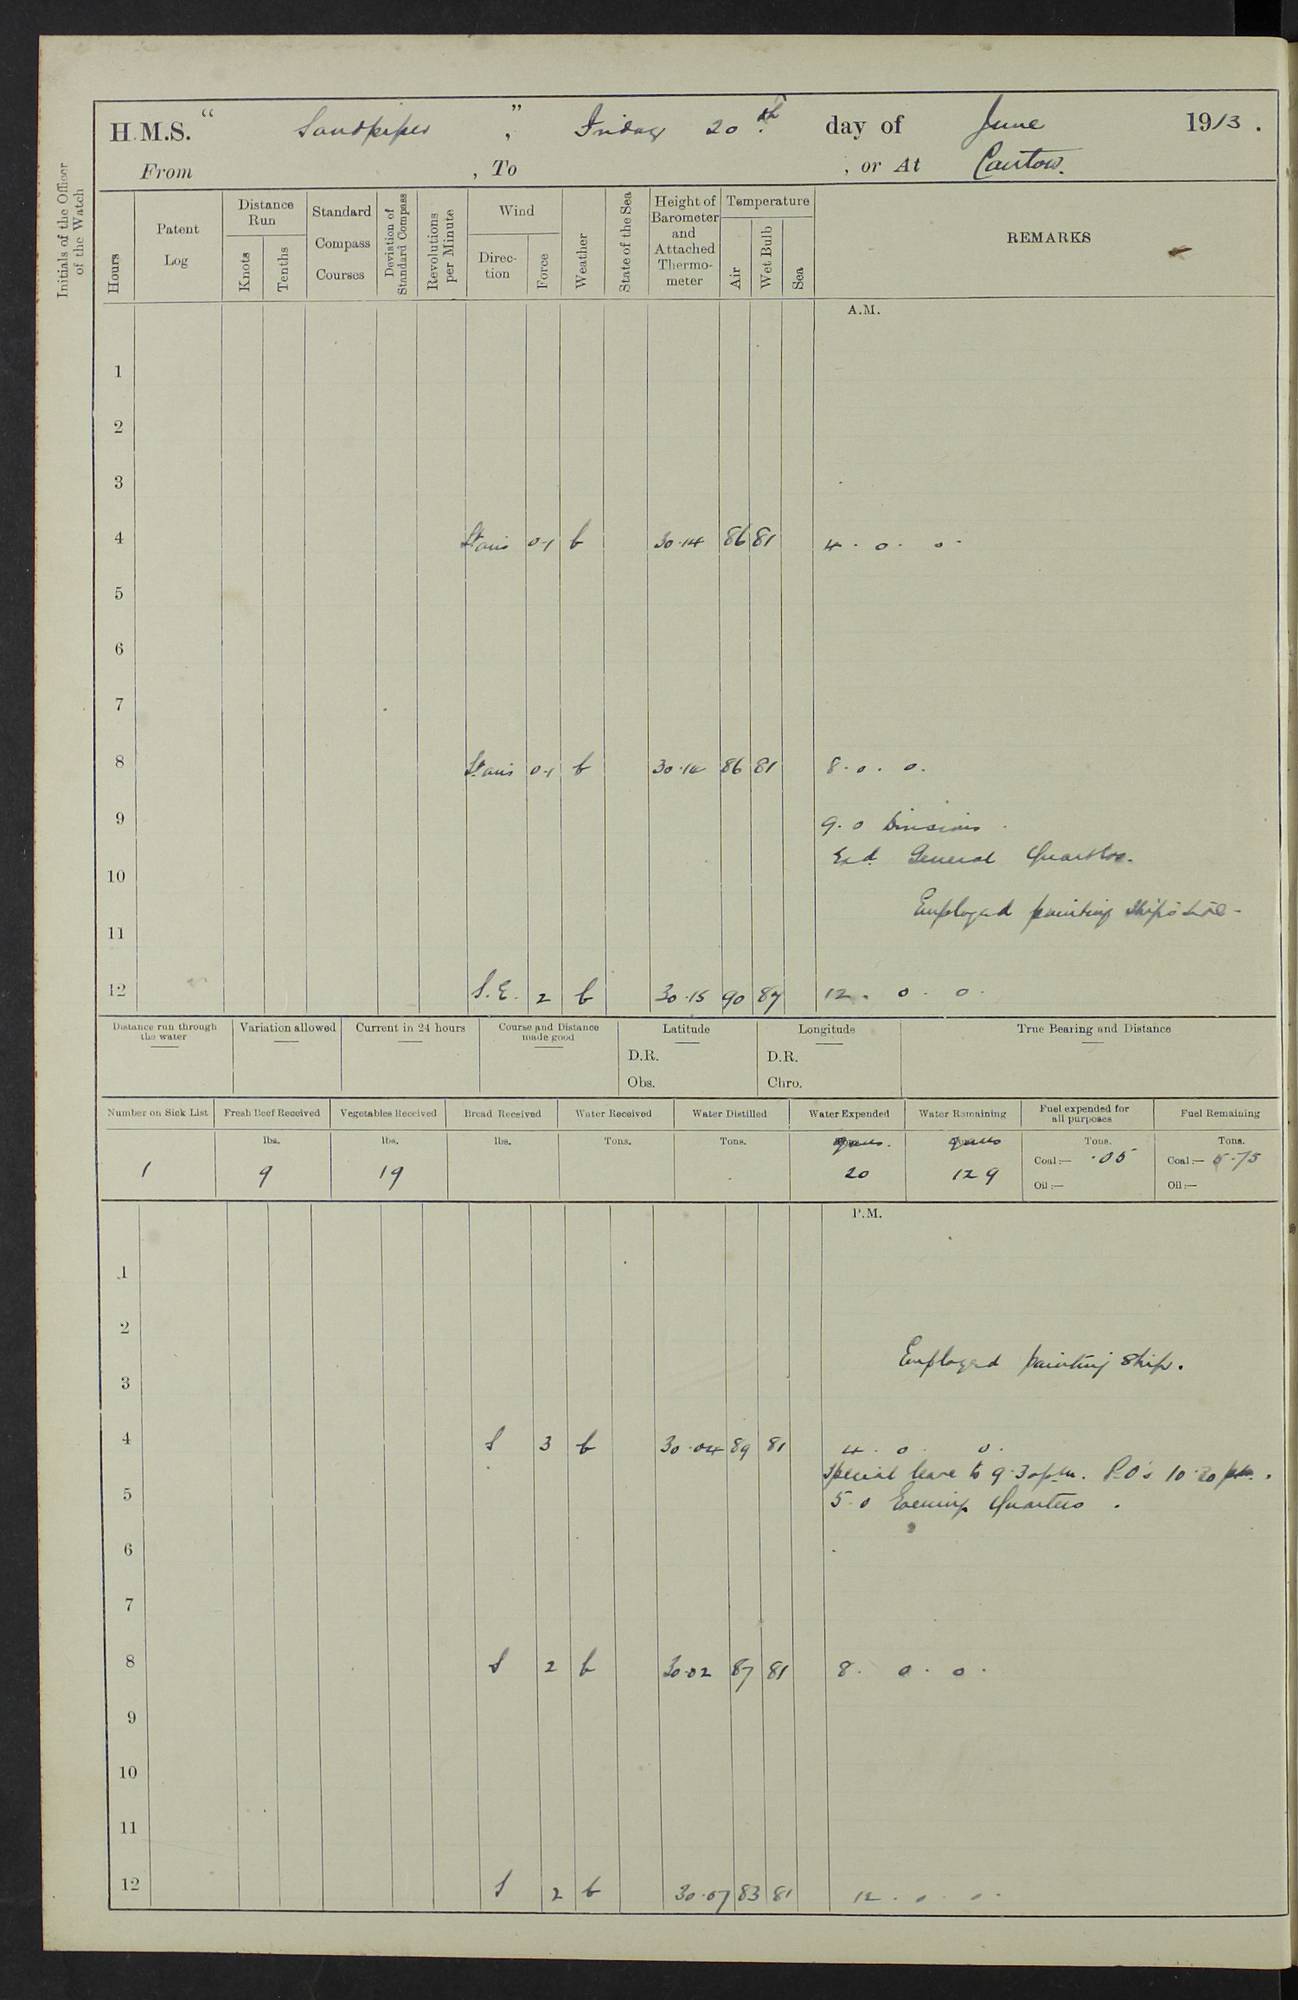 H.M.S. "Sandpiper", Friday 20th. day of June 1913.
From , To , or At Canton.
Initials of the Officer of the Watch
Hours
Patent Log
Distance Run
Knots
Tenths
Standard Compass Courses
Deviation of Standard Compass
Revolutions per Minute
Wind
Direction
Force
Weather
State of the Sea
Height of Barometer and Attached Thermometer
Temperature
Air
Wet Bulb
Sea
REMARKS
A.M.
1
2
3
4 0-1 b 30.14 86 81 4. 0. 0.
5
6
7
8 0-1 b 86 81 8. 0. 0.
9 9. 0 Divisions
Exd. General Quarters.
10
Employed painting Ships side-
11
12 S.E. 2 b 30.15 90 87 12. 0. 0.
Distance run through the water
Variation allowed
Current in 24 hours
Course and Distance made good
Latitude
D.R.
Obs.
Longitude
D.R.
Chro.
True Bearing and Distance
Number on Sick List
Fresh Beef Received
Vegetables Received
Bread Received
Water Received
Water Distilled
Water Expended
Water Remaining
Fuel expended for all purposes
Fuel Remaining
lbs. lbs. lbs. Tons. Tons. Tons. Tons.
1 9 19 20 129
Coal:— .05 Coal:— 5.75
Oil:— Oil:—
P.M.
1
2
Employed painting Ship.
3
4 S 3 b 30.04 89 81 4. 0. 0.
Special leave to 9.30 p.m. P.O's 10.30 pm.
5 5.0 Evening Quarters.
6
7
8 S 2 b 30.02 87 81 8. 0. 0.
9
10
11
12 S 2 b 30.07 83 81 12. 0. 0.